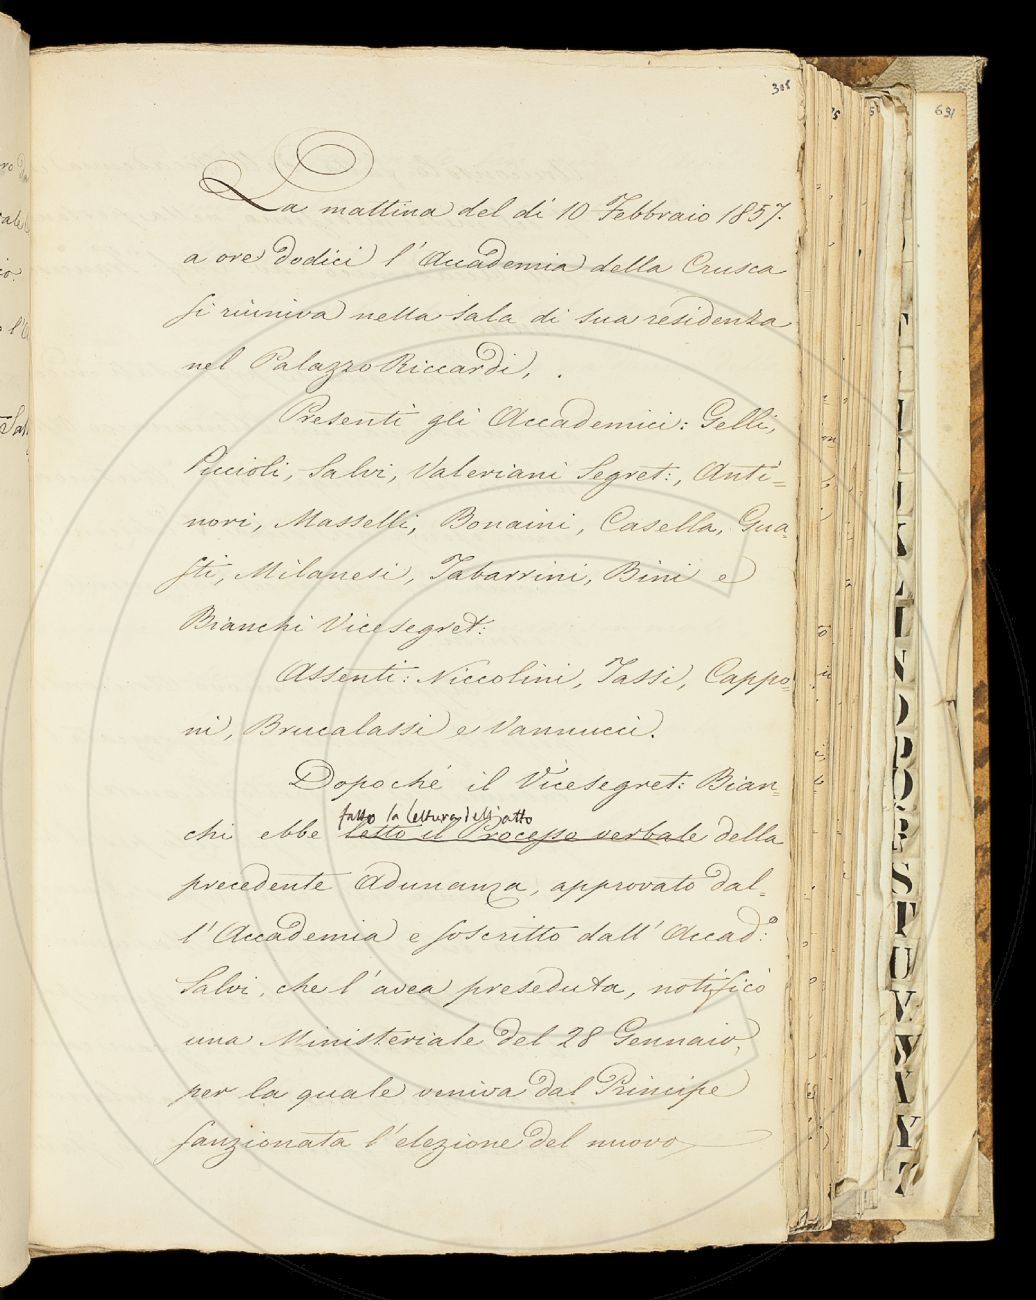 305
La mattina del dì 10 Febbraio 1857.
a ore dodici l'Accademia della Crusca
si riuniva nella sala di sua residenza
nel Palazzo Riccardi,
Presenti gli Accademici: Gelli,
Piccioli, Salvi, Valeriani Segret:, Anti=
nori, Masselli, Bonaini, Casella, Gua=
sti, Milanesi, Tabarrini, Bini e
Bianchi Vicesegret:
Assenti: Niccolini, Tassi, Cappo=
ni, Brucalassi e Vannucci.
Dopoché il Vicesegret: Bian=
fatto la lettura dell'atto
chi ebbe letto il Processo verbale della
precedente Adunanza, approvato dal=
l'Accademia e soscritto dall'Accad:
Salvi, che l'avea preseduta, notificò
una Ministeriale del 28 Gennaio,
per la quale veniva dal Principe
sanzionata l'elezione del nuovo
691